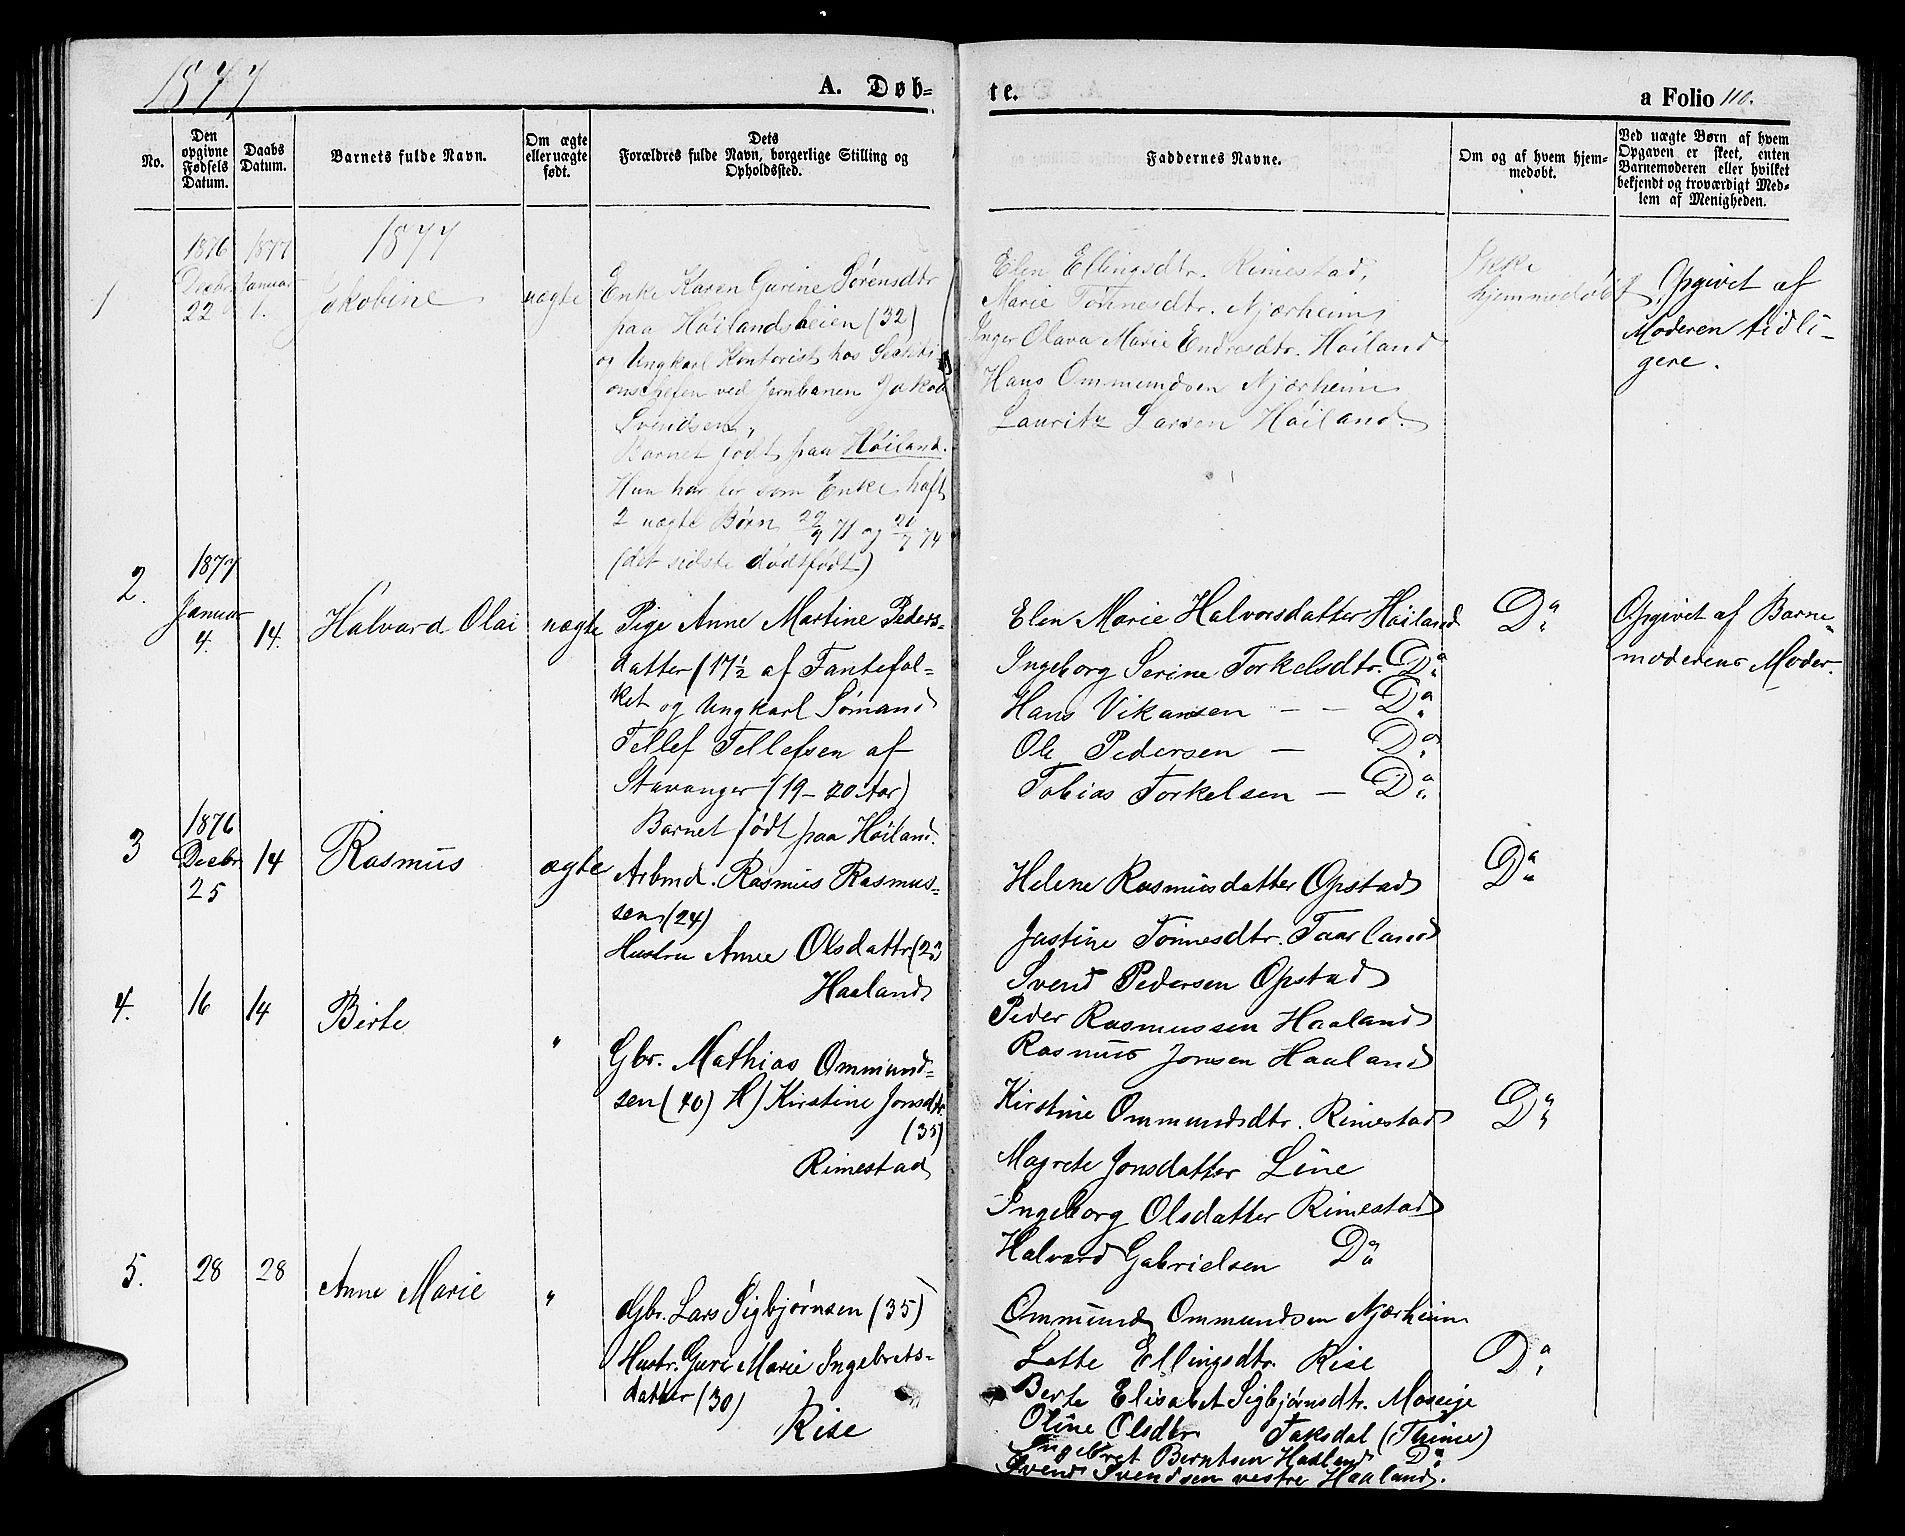 1877
A. Døb-
te.
a Folio 110.
No.
Den opgivne Fødsels Datum.
Daabs Datum.
Barnets fulde Navn.
Om ægte eller uægte født.
Dets Forældres fulde Navn, borgerlige Stilling og Opholdssted.
Faddernes Navne.
Om og af hvem hjem-
medøbt.
Ved uægte Børn af hvem
Opgaven er skeet, enten
Barnemoderen eller hvilket
bekjendt og troværdigt Med-
lem af Menigheden.
1877
1
1876 Decbr 22
1877 Januar 1.
Jakobine
uægte
Enke Karen Gurine Sørensdtr
paa Høilandsheien (32)
og Ungkarl Kontorist hos Sekti-
onschefen ved Jernbanen Jakob
Svendsen.
Barnet født paa Høiland.
Hun har før som Enke haft
2 uægte Børn 22/9 71 og 20/7 74
(det sidste dødtfødt)
Elen Ellingsdtr. Rimestad,
Marie Tønnesdtr. Njærheim
Inger Olava Marie Endresdtr. Høiland
Hans Ommundsen Njærheim
Lauritz Larsen Høiland.
Ikke
hjemmedøbt
Opgivet af
Moderen tidli-
gere.
2.
1877 Januar 4.
14.
Halvard Olai
uægte
Pige Anne Martine Peders-
datter (17½ af Fantefol-
ket og Ungkarl Sømand
Tellef Tellefsen af
Stavanger (19-20 Aar)
Barnet født paa Høiland.
Elen Marie Halvorsdatter Høiland
Ingeborg Serine Torkelsdtr. Do
Hans Vikansen - - Do
Ole Pedersen - Do
Tobias Torkelsen - Do
Do
Opgivet af Barne-
moderens Moder.
3
1876 Decbr 25
14
Rasmus
ægte
Arbmd. Rasmus Rasmus-
sen (24)
Hustru Anne Olsdattr (22
Haaland
Helene Rasmusdatter Opstad
Justine Tønnesdtr. Taarland
Svend Pedersen Opstad
Peder Rasmussen Haaland
Rasmus Jonsen Haaland
Do
4.
16
14
Birte
"
Gbr. Mathias Ommund-
sen (40) H) Kirstine Jonsdtr.
(35)
Rimestad
Kirstine Ommundsdtr. Rimestad
Magrete Jonsdatter Line
Ingeborg Olsdatter Rimestad
Halvard Gabrielsen Do
Ommund Ommundsen Njærheim
Do
5.
28
28
Anne Marie
"
Gbr. Lars Sigbjørnsen (35)
Hustr. Guri Marie Ingebrets-
datter (30)
Rise
Lotte Ellingsdtr. Rise
Berte Elisabet Sigbjørnsdtr. Mossige
Oline Olsdtr. Taksdal (Thime)
Ingebret Berntsen Haaland Do
Svend Svendsen vestre Haaland.
Do